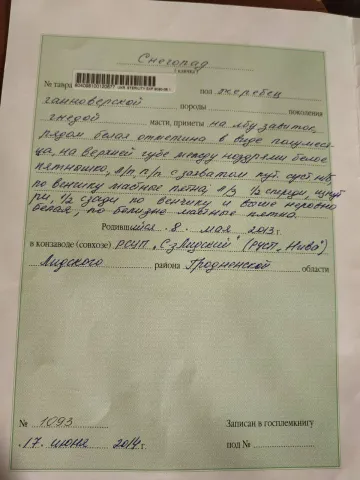 Снегопад
(кличка)
№ тавра пол жеребец
ганноверской породы поколения
гнедой масти, приметы на лбу завиток,
рядом белая отметина в виде полумеся-
ца, на верхней губе между ноздрями белое
пятнышко, л/п, п/п с захватом пут. суст
по венчику пятна, 1/2 спереди,
ри, 1/2 сзади по венчику и выше неровно
белая, по белизне пятна.
Родившийся 8. мая 2013 г.
в конзаводе (совхозе) РСУП „СЗ Лидский" (РУСП „Нива")
Лидского района Гродненской области
№ 1093 Записан в госплемкнигу
„17" июня 2014 г. под №